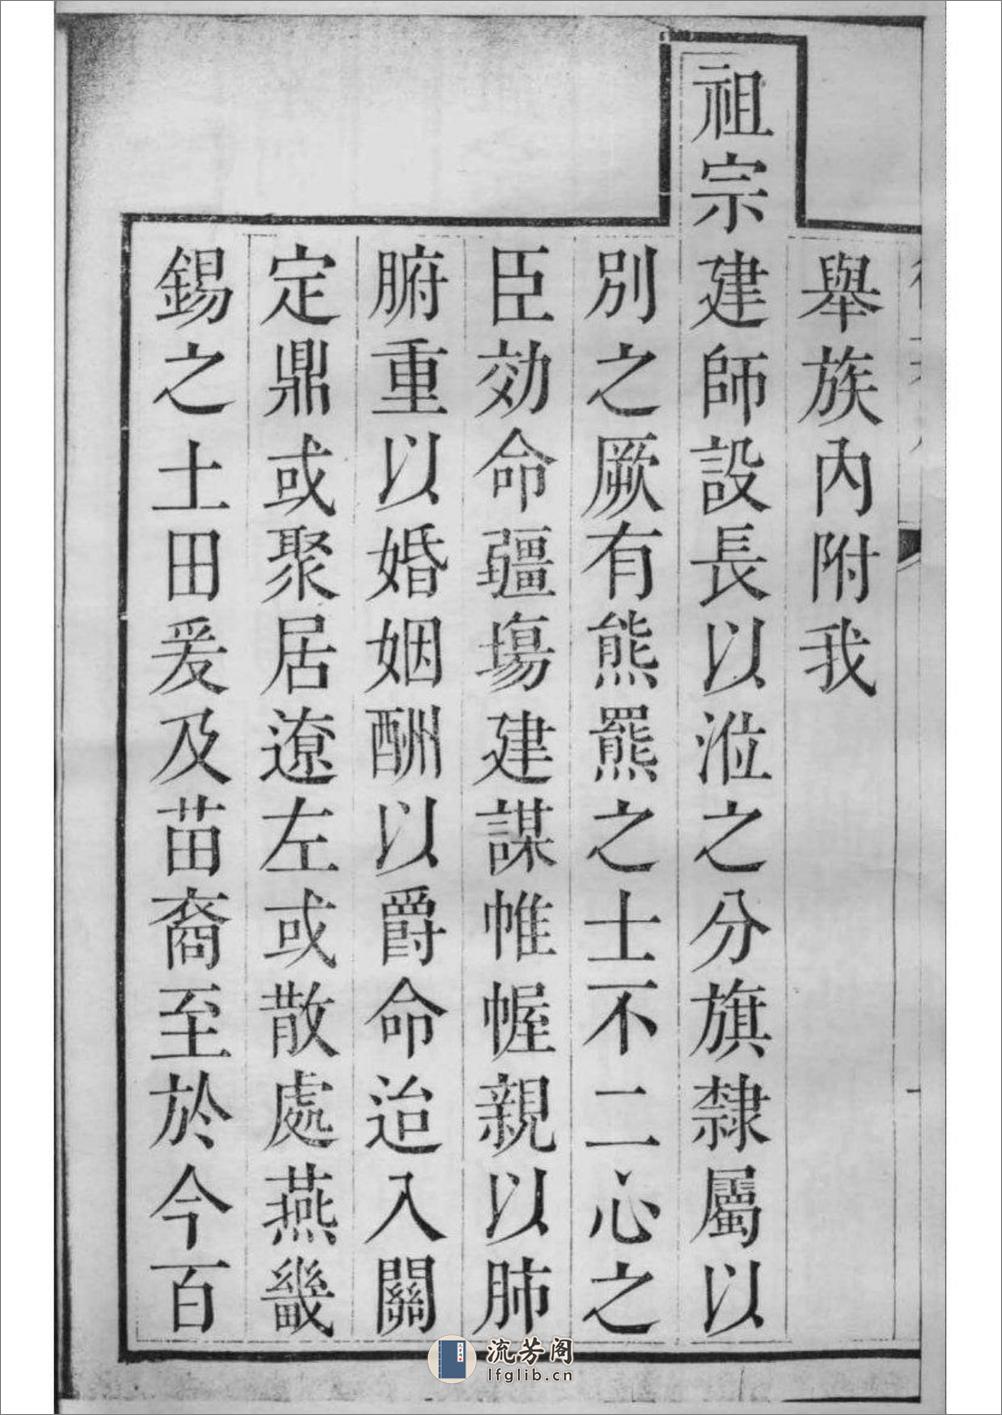 舉族內附我
祖宗建師設長以涖之分旗隸屬以
別之厥有熊羆之士不二心之
臣効命疆塲建謀帷幄親以肺
腑重以婚姻酬以爵命迨入關
定鼎或聚居遼左或散處燕畿
錫之土田爰及苗裔至於今百
流芳阁
lfglib.cn